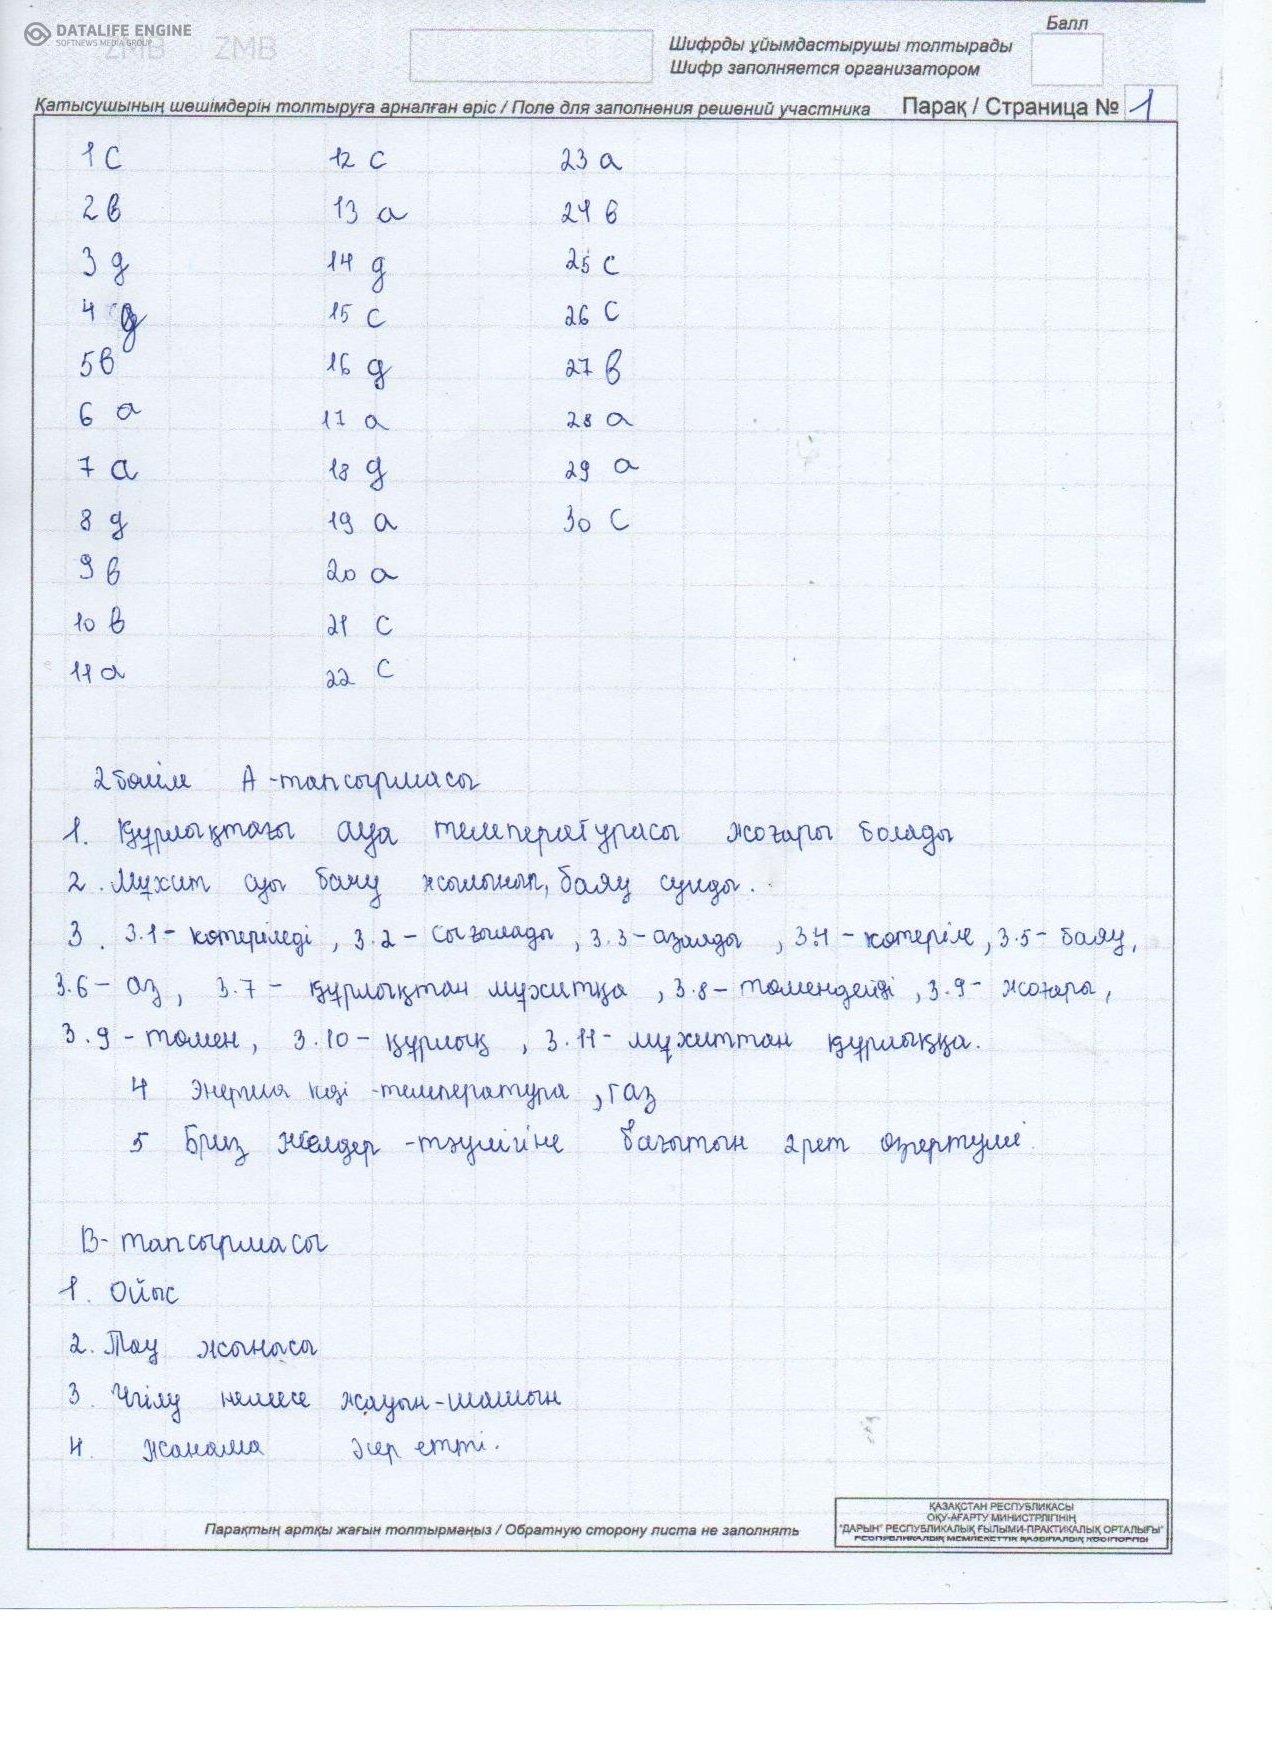 DATALIFE ENGINE
SOFTNEWS MEDIA GROUP
ZMB ZMB
Балл
Шифрды ұйымдастырушы толтырады
Шифр заполняется организатором
Қатысушының шешімдерін толтыруға арналған өріс / Поле для заполнения решений участника Парақ / Страница № 1
1 с 12 с 23 а
2 в 13 а 24 в
3 д 14 д 25 с
4 д 15 с 26 с
5 в 16 д 27 в
6 а 17 а 28 а
7 а 18 д 29 а
8 д 19 а 30 с
9 в 20 а
10 в 21 с
11 а 22 с
2 бөлім А -тапсырмасы
1. Құрлықтағы ауа температурасы жоғары болады
2. Мұхит суы баяу жылынып, баяу суиды.
3. 3.1 - көтеріледі, 3.2 - сығылады, 3.3 - азаяды, 3.4 - көтеріле, 3.5 - баяу,
3.6 - аз, 3.7 - құрлықтан мұхитқа, 3.8 - төмендейді, 3.9 - жоғары,
3.9 - төмен, 3.10 - құрлық, 3.11 - мұхиттан құрлыққа.
4 Энергия көзі -температура, газ
5 Бриз желдер -тәулігіне бағытын 2 рет өзгертуі
В- тапсырмасы
1. Ойыс
2. Тау жынысы
3. Үгілу немесе жауын-шашын
4. жанама әсер етті.
Парақтың артқы жағын толтырмаңыз / Обратную сторону листа не заполнять
ҚАЗАҚСТАН РЕСПУБЛИКАСЫ
ОҚУ-АҒАРТУ МИНИСТРЛІГІНІҢ
"ДАРЫН" РЕСПУБЛИКАЛЫҚ ҒЫЛЫМИ-ПРАКТИКАЛЫҚ ОРТАЛЫҒЫ"
РЕСПУБЛИКАЛЫҚ МЕМЛЕКЕТТІК ҚАЗЫНАЛЫҚ КӘСІПОРНЫ